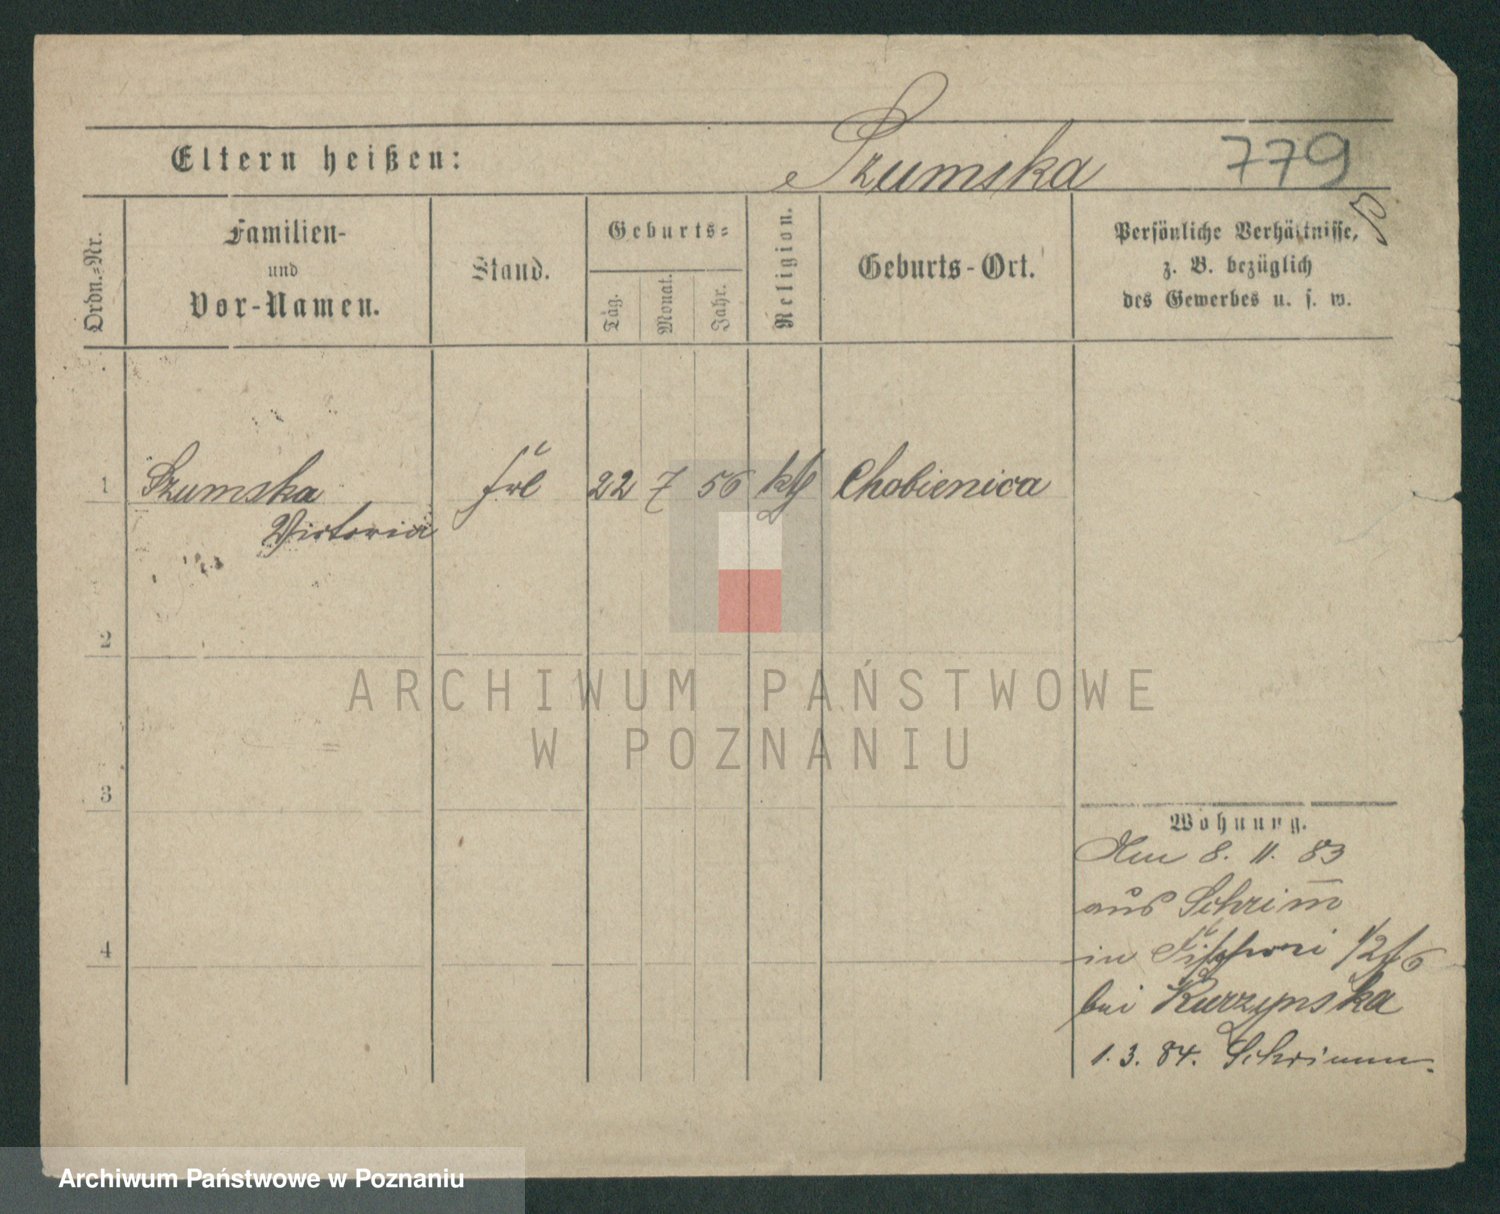 Eltern heißen: Szumska 779
Ordn.-Nr.
Familien-
und
Vor-Namen.
Stand.
Geburts-
Tag.
Monat.
Jahr.
Religion.
Geburts-Ort.
Persönliche Verhältnisse,
z. B. bezüglich
des Gewerbes u. s. w.
1 Szumska frl 22 7 56 kth Chobienica
Victoria
2
ARCHIWUM PAŃSTWOWE
W POZNANIU
3
Wohnung.
Am 8. 11. 83
aus Schrim̅
4
in
bei Kurzynska
1. 3. 84. Schrimm.
Archiwum Państwowe w Poznaniu